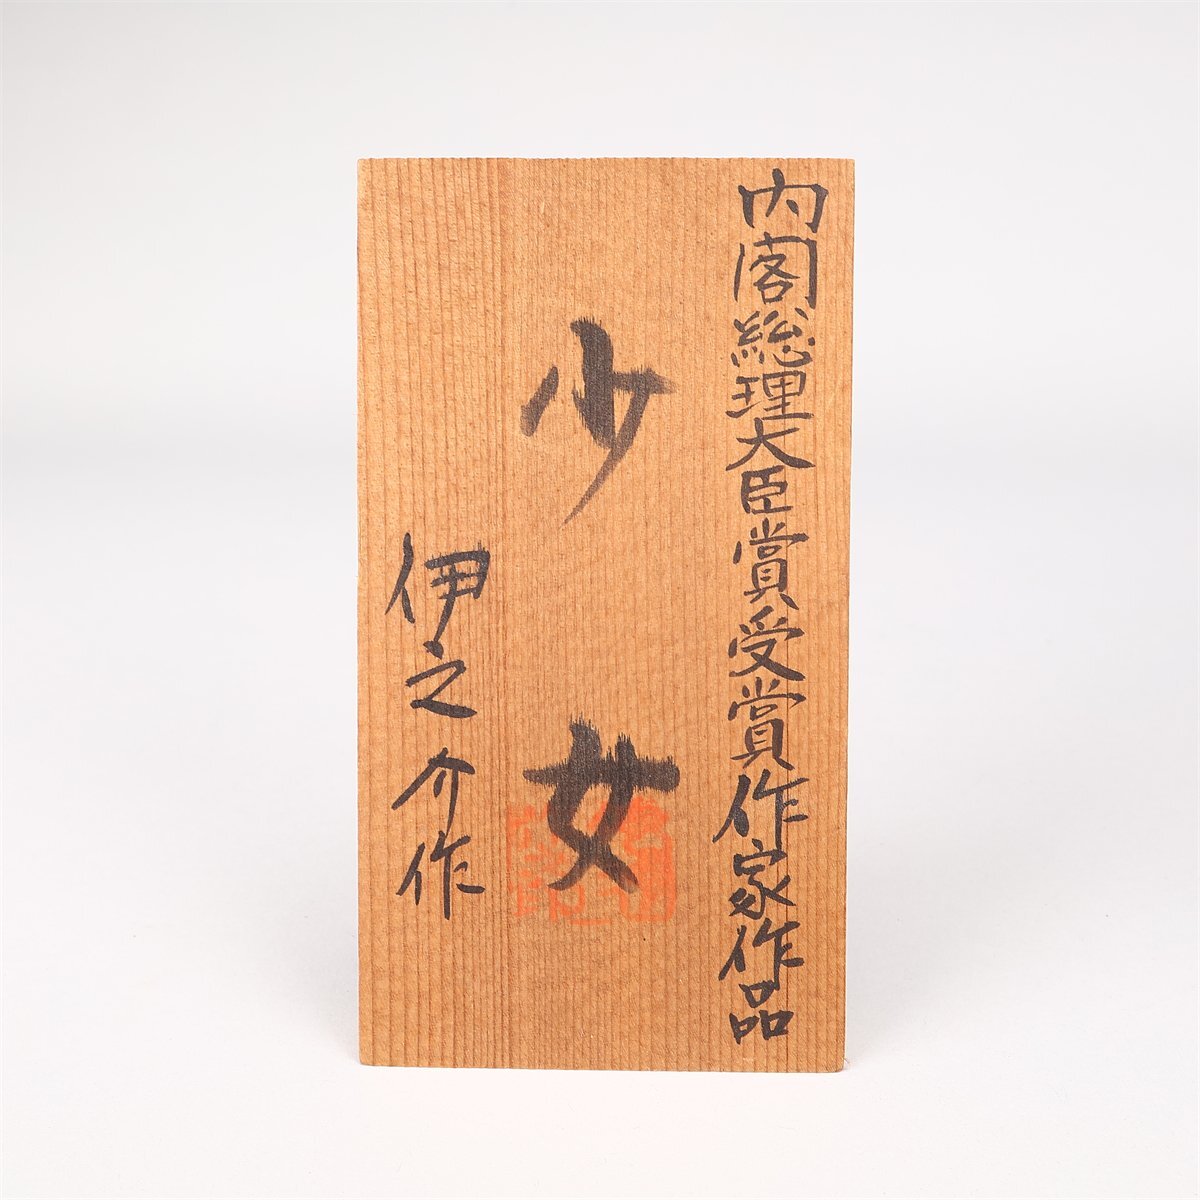 内閣総理大臣賞受賞作家作品
少女
伊之介作